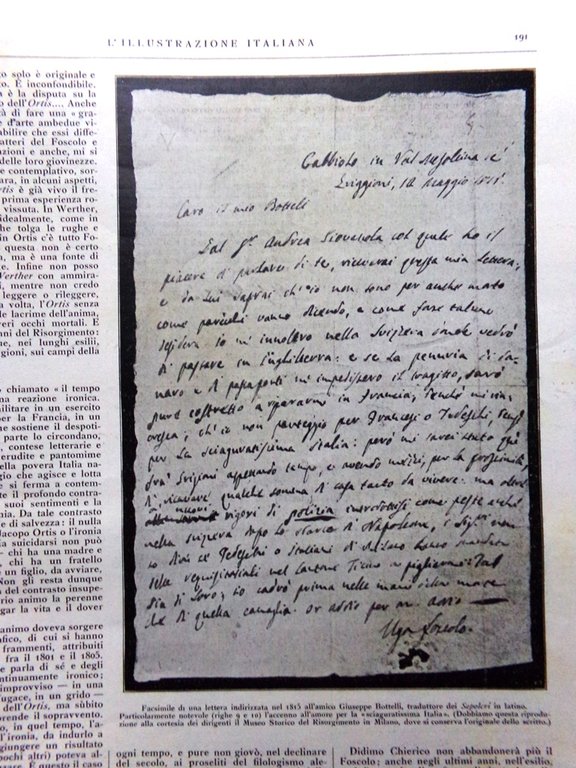 L'ILLUSTRAZIONE ITALIANA
191
to solo è originale e
to. È inconfondibile.
a è la disputa su la
o dell'Ortis.... Anche
tà di fare una « gra-
e d'arte ambedue vi-
abilire che essi diffe-
atteri del Foscolo e
azioni e anche, mi si
delle loro giovinezze.
e contemplativo, sor-
ara, in alcuni aspetti,
rtis è già vivo il fre-
prima esperienza ro-
vissuta. In Werther,
idealmente, come in
he tolga le rughe e
in Ortis c'è tutto Fo-
questa non è certo
a, ma è una fonte di
e. Infine non posso
Werther con ammira-
i, mentre non credo
leggere o rileggere,
a volta, l'Ortis senza
le lacrime dell'anima,
veri occhi mortali. E
ani del Risorgimento:
ne, nei lunghi esilii,
gioni, sui campi della
chiamato « il tempo
una reazione ironica.
militare in un esercito
per la Francia, in un
he sostiene il despoti-
parte lo circondano,
, contese letterarie e
erudite e pantomime
nella povera Italia na-
gio che agisce e lotta
e si ferma a contem-
il profondo contra-
suoi sentimenti e la
nia. Da tale contrasto
e di salvezza: il nulla
Jacopo Ortis o l'ironia
a suicidarsi non può
— chi ha una madre e
chi ha un fratello
un figlio, da avviare,
Non gli resta dunque
n del contrasto insupe-
rio animo la perenne
gar la vita e il dover
animo doveva sorgere
afico, di cui si hanno
frammenti, attribuiti
fra il 1801 e il 1805.
e parla di sé e degli
ntinuamente ironico;
improvviso — in una
fugace, in un grido —
dell'Ortis, ma sùbito
prende il sopravvento.
o, in quel tempo, l'a-
d'ironia, da indurlo a
aggiungere un risultato
pochi altri) poteva al-
essere. E questo il caso
in Val Mesolcina
12 Maggio 1815.
Caro il mio Bottelli
Dal Sr Andrea col quale ho il
piacere di parlare di te, riceverai questa mia lettera:
e da lui saprai ch'io non sono per anche morto
come parecchi vanno dicendo, e come forse taluno
desidera. Io m'innoltro nella Svizzera donde vedrò
di passare in Inghilterra: e se la penuria di da-
naro e di passaporti m'impedissero il tragitto, sarò
pure costretto a ripararmi in Francia;
ch'io non parteggio per Francesi o Tedeschi,
per la sciaguratissima Italia: però mi sarei stato qui
fra' Svizzeri aspettando tempo, e avendo
di ricavare qualche somma di casa tanto da vivere: ma oltre
nuovi rigori di polizia introdotti come peste anche
nella Svizzera dopo lo sbarco di Napoleone,
Tedeschi o Italiani di Milano hanno mandato
delle requisitoriali nel Cantone Ticino a pigliarmi:
Dio di loro; io cadrò prima nelle mani della morte
che di quella canaglia. or addio per
Ugo Foscolo.
Facsimile di una lettera indirizzata nel 1815 all'amico Giuseppe Bottelli, traduttore dei Sepolcri in latino.
Particolarmente notevole (righe 9 e 10) l'accenno all'amore per la «sciaguratissima Italia». (Dobbiamo questa riprodu-
zione alla cortesia dei dirigenti il Museo Storico del Risorgimento in Milano, dove si conserva l'originale dello scritto.)
ogni tempo, e pure non giovò, nel declinare
del secolo, ai proseliti del filologismo ale-
Didimo Chierico non abbandonerà più il
Foscolo: anche negli ultimi anni, nell'esilio,